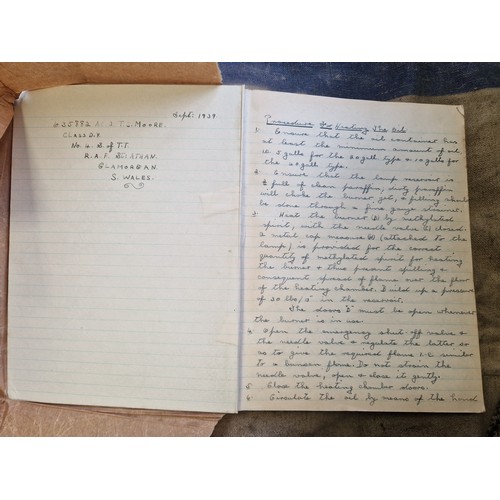 Sept: 1939
625892 MOORE.
CLASS D.F.
No. 4. S. of T.T.
R.A.F. St ATHAN.
GLAMORGAN.
S. WALES.
Procedure For Heating The Oil
1. Ensure that the oil container has
at least the minimum amount of oil
i.e. 5 galls for the 20 gall type & 10 galls for
the 40 gall type.
2. Ensure that the lamp reservoir is
¾ full of clean paraffin, dirty paraffin
will choke the burner jet, & filling should
be done through a fine gauze strainer.
3. Heat the burner (D) by methylated
spirit, with the needle valve closed.
A metal cap measure (attached to the
lamp) is provided for the correct
quantity of methylated spirit for heating
the burner & thus prevent spilling &
consequent spread of flame over the floor
of the heating chamber. Build up a pressure
of 20 lbs/□" in the reservoir.
The doors must be open whenever
the burner is in use.
4. Open the emergency shut-off valve &
the needle valve & regulate the latter so
as to give the required flame i.e similar
to a bunsen flame. Do not strain the
needle valve, open & close it gently.
5. Close the heating chamber doors.
6. Circulate the oil by means of the hand